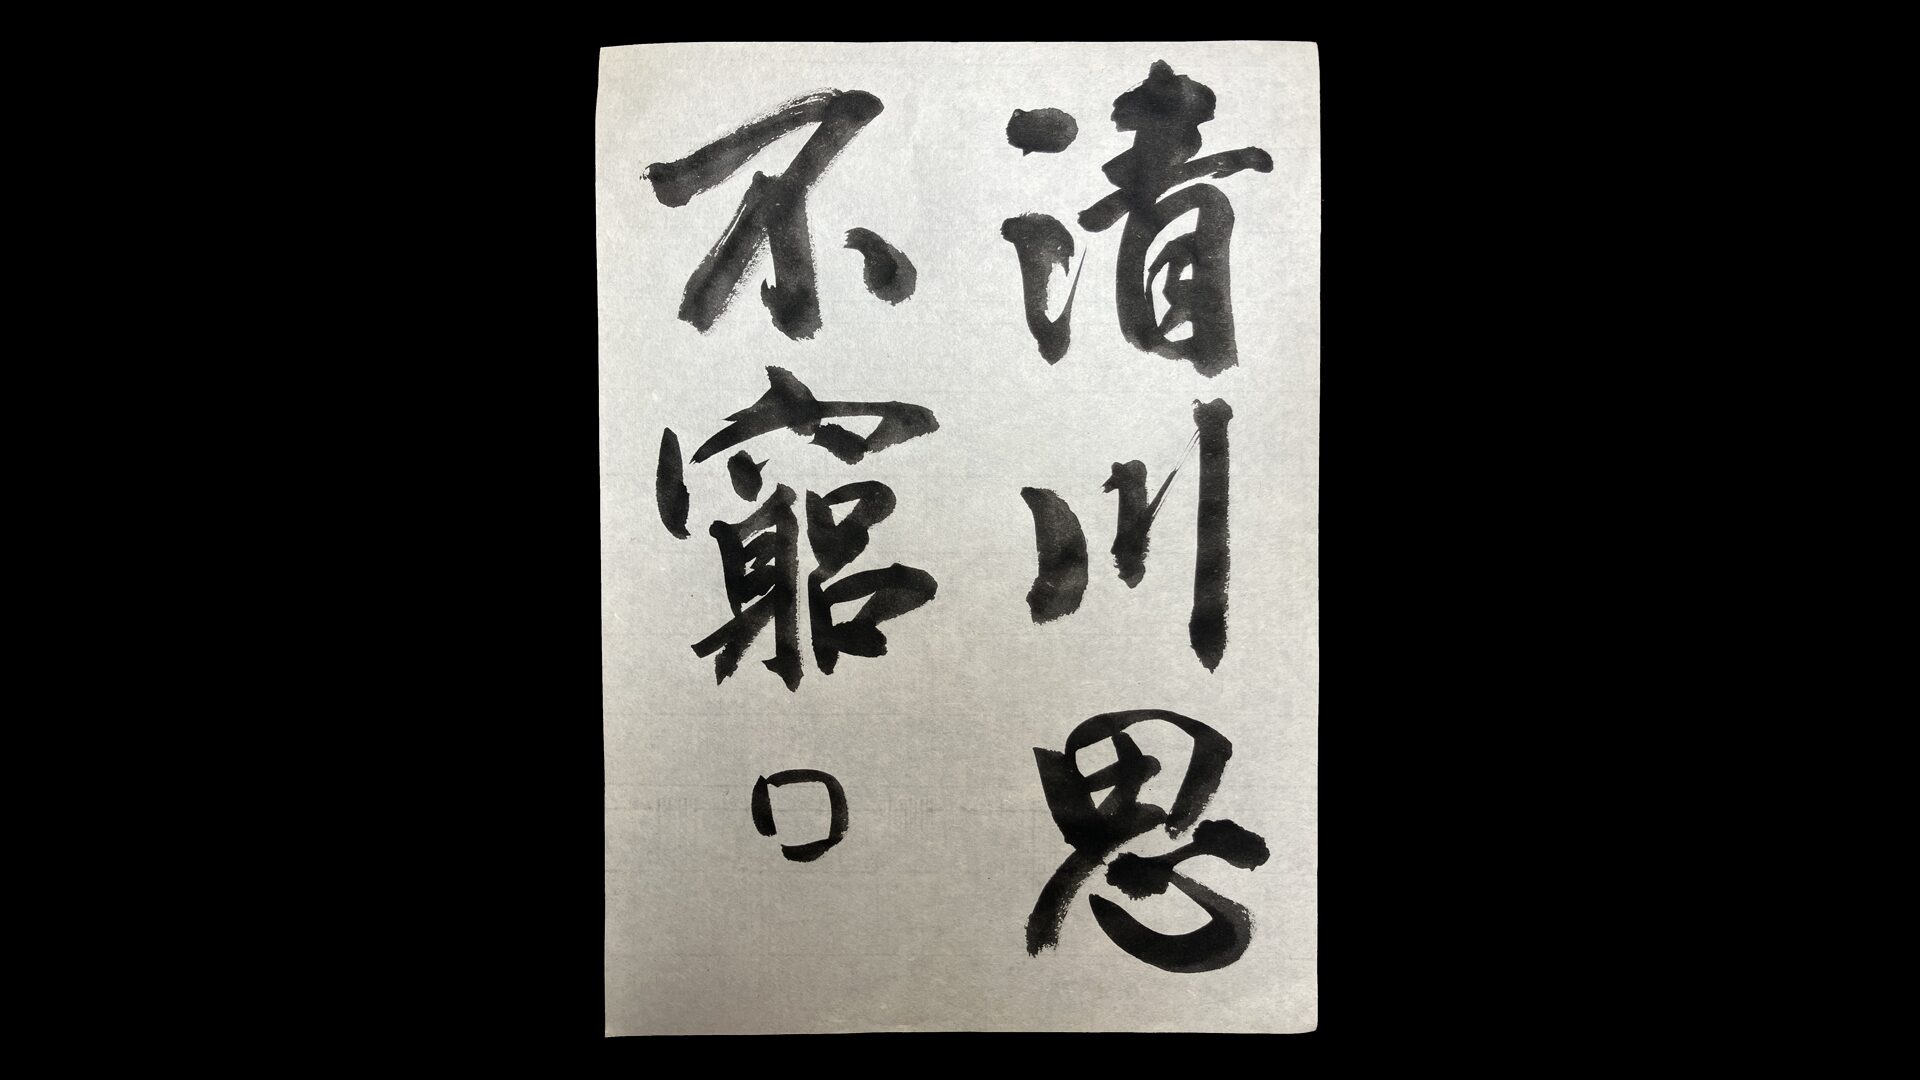 清川思
不窮